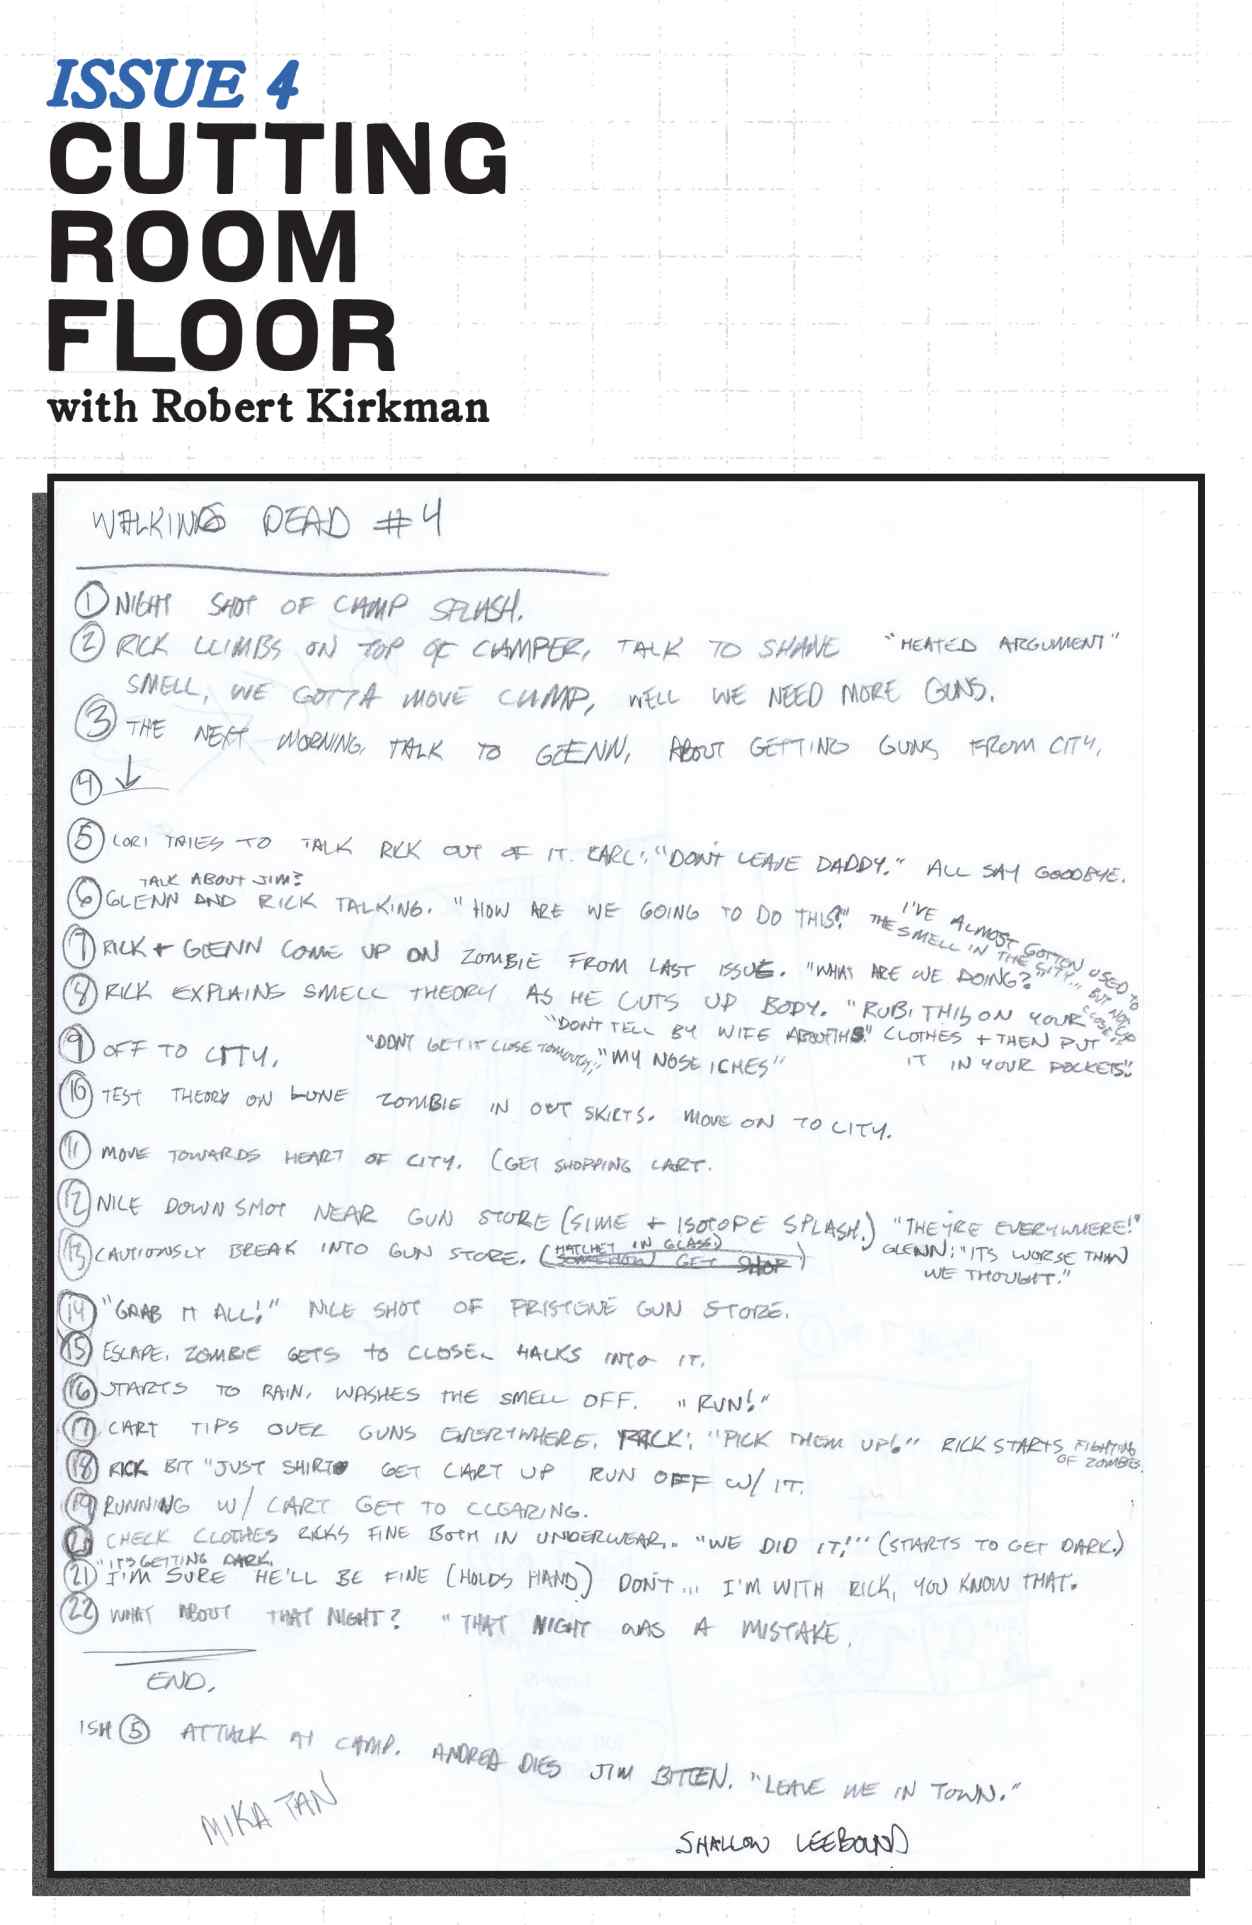 ISSUE 4
CUTTING
ROOM
FLOOR
with Robert Kirkman
WALKING DEAD #4
1 NIGHT SHOT OF CAMP SPLASH.
2 RICK CLIMBS ON TOP OF CAMPER, TALK TO SHANE "HEATED ARGUMENT"
SMELL, WE GOTTA MOVE CAMP, WELL WE NEED MORE GUNS.
3 THE NEXT MORNING, TALK TO GLENN, ABOUT GETTING GUNS FROM CITY.
4 ↓
5 LORI TRIES TO TALK RICK OUT OF IT. CARL: "DON'T LEAVE DADDY." ALL SAY GOODBYE.
TALK ABOUT JIM?
6 GLENN AND RICK TALKING. "HOW ARE WE GOING TO DO THIS?" THE SMELL IN THE CITY...
I'VE ALMOST GOTTEN USED TO
BUT NOT SO CLOSE
7 RICK + GLENN COME UP ON ZOMBIE FROM LAST ISSUE. "WHAT ARE WE DOING?"
8 RICK EXPLAINS SMELL THEORY AS HE CUTS UP BODY. "RUB THIS ON YOUR
"DON'T TELL BY WIFE ABOUT THIS." CLOTHES + THEN PUT
9 OFF TO CITY. "DON'T GET IT CLOSE TO MOUTH," "MY NOSE ICHES" IT IN YOUR POCKETS."
10 TEST THEORY ON LONE ZOMBIE IN OUT SKIRTS. MOVE ON TO CITY.
11 MOVE TOWARDS HEART OF CITY. (GET SHOPPING CART.
12 NICE DOWN SHOT NEAR GUN STORE (SIME + ISOTOPE SPLASH.) "THEY'RE EVERYWHERE!"
13 CAUTIOUSLY BREAK INTO GUN STORE. (HATCHET IN GLASS) GLENN: "ITS WORSE THAN
SOMEHOW GET SHOP) WE THOUGHT."
14 "GRAB IT ALL!" NICE SHOT OF PRISTENE GUN STORE.
15 ESCAPE. ZOMBIE GETS TO CLOSE. WALKS INTO IT.
16 STARTS TO RAIN. WASHES THE SMELL OFF. "RUN!"
17 CART TIPS OVER GUNS EVERYWHERE. RICK: "PICK THEM UP!" RICK STARTS FIGHTING
OF ZOMBIES.
18 RICK BIT "JUST SHIRT GET CART UP RUN OFF W/ IT.
19 RUNNING W/ CART GET TO CLEARING.
20 CHECK CLOTHES RICKS FINE BOTH IN UNDERWEAR. "WE DID IT!" (STARTS TO GET DARK.)
"ITS GETTING DARK.
21 I'M SURE HE'LL BE FINE (HOLDS HAND) DON'T... I'M WITH RICK, YOU KNOW THAT.
22 WHAT ABOUT THAT NIGHT? "THAT NIGHT WAS A MISTAKE.
END.
ISH 5 ATTACK AT CAMP. ANDREA DIES JIM BITTEN. "LEAVE ME IN TOWN."
MIKA TAN
SHALLOW LEEBOUND